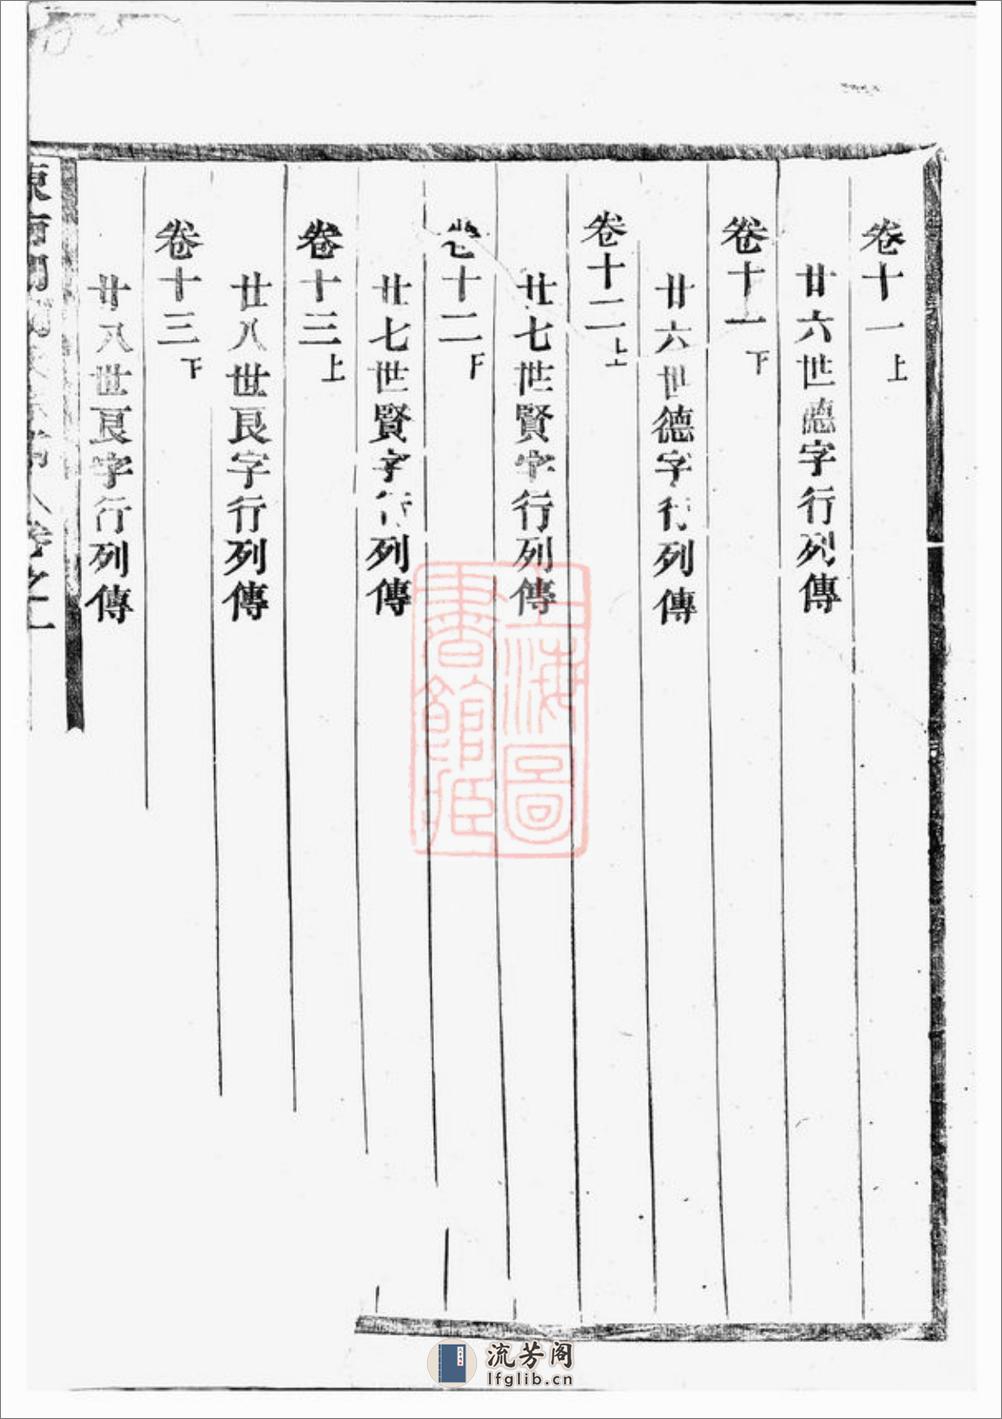 卷十一上
廿六世德字行列傳
卷十一下
廿六世德字行列傳
卷十二上
廿七世賢字行列傳
卷十二下
廿七世賢字行列傳
卷十三上
廿八世良字行列傳
卷十三下
廿八世良字行列傳
上海圖
書館藏
流芳阁
lfglib.cn